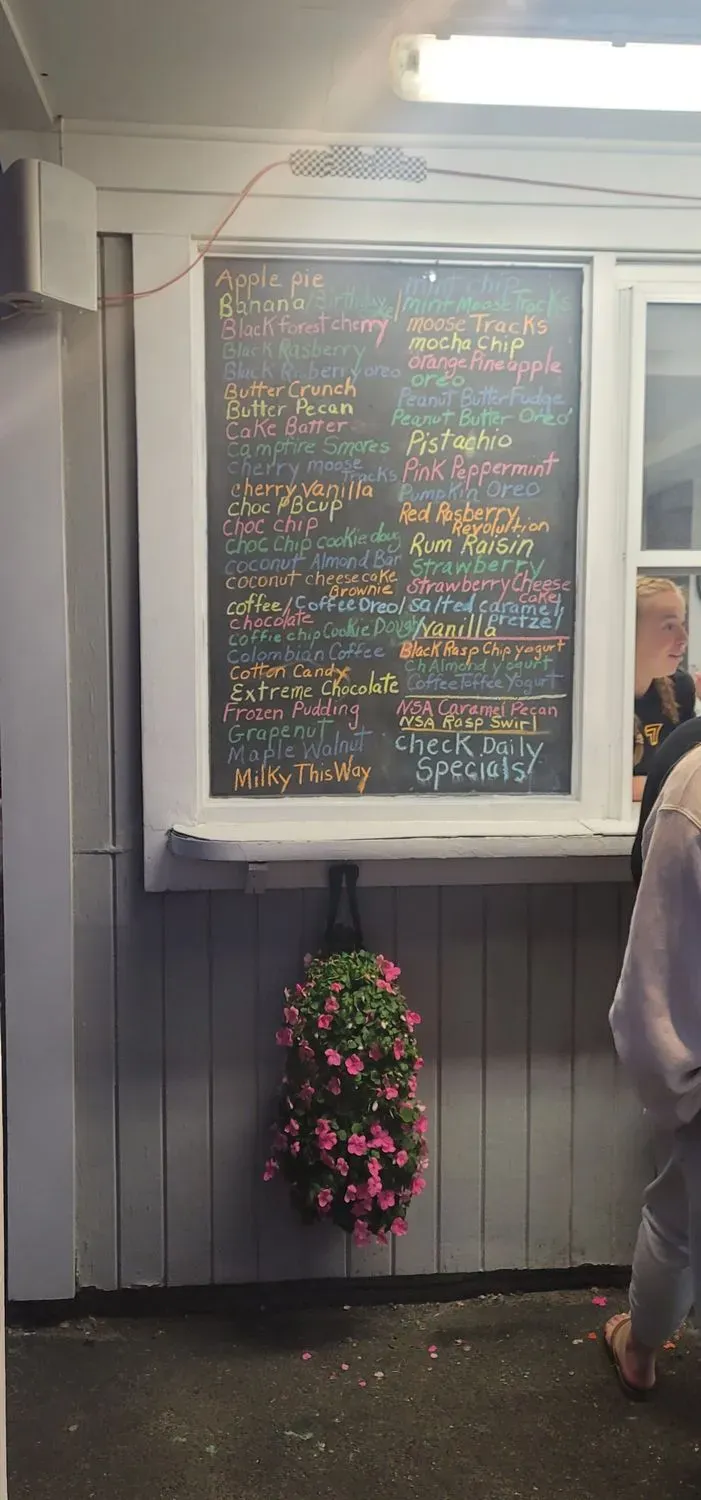 Apple pie
Banana/Birthday Cake/
Black forest cherry
Black Rasberry
Black Rasberry oreo
Butter Crunch
Butter Pecan
Cake Batter
Campfire Smores
cherry moose
Tracks
cherry vanilla
choc PB cup
choc chip
choc chip cookie doug
coconut Almond Bar
coconut cheesecake
Brownie
coffee/Coffee Oreo/
chocolate
coffie chip Cookie Dough/
Colombian Coffee
Cotton Candy
Extreme Chocolate
Frozen Pudding
Grapenut
Maple Walnut
Milky This Way
mint chip
mint Moose Tracks
moose Tracks
mocha chip
orange Pineapple
oreo
Peanut Butter Fudge
Peanut Butter Oreo
Pistachio
Pink Peppermint
Pumpkin Oreo
Red Rasberry
Revolultion
Rum Raisin
Strawberry
Strawberry Cheese
cake
salted caramel
pretzel
vanilla
Black Rasp Chip yogurt
Ch Almond yogurt
Coffee Toffee Yogurt
NSA Caramel Pecan
NSA Rasp Swirl
Check Daily
Specials!